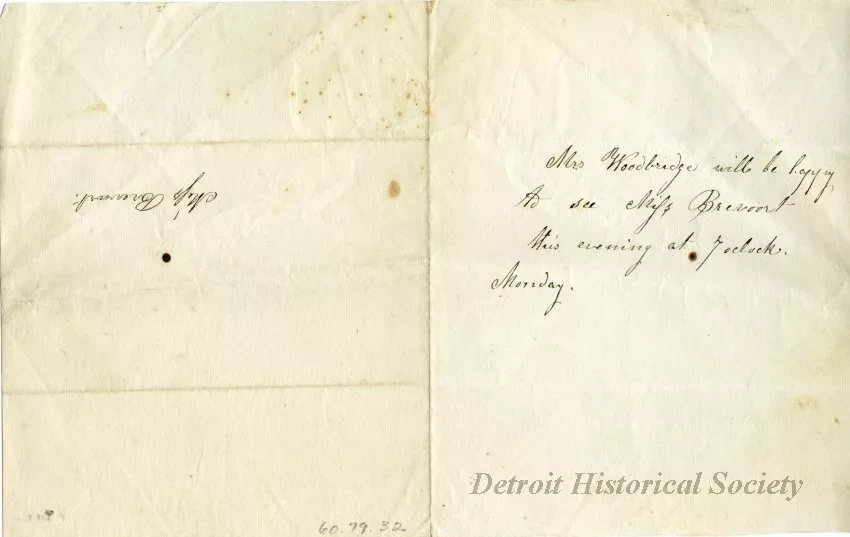 Miss Brevoort.
Mrs Woodbridge will be happy
to see Miss Brevoort
this evening at 7 oclock.
Monday.
Detroit Historical Society
60.79.32